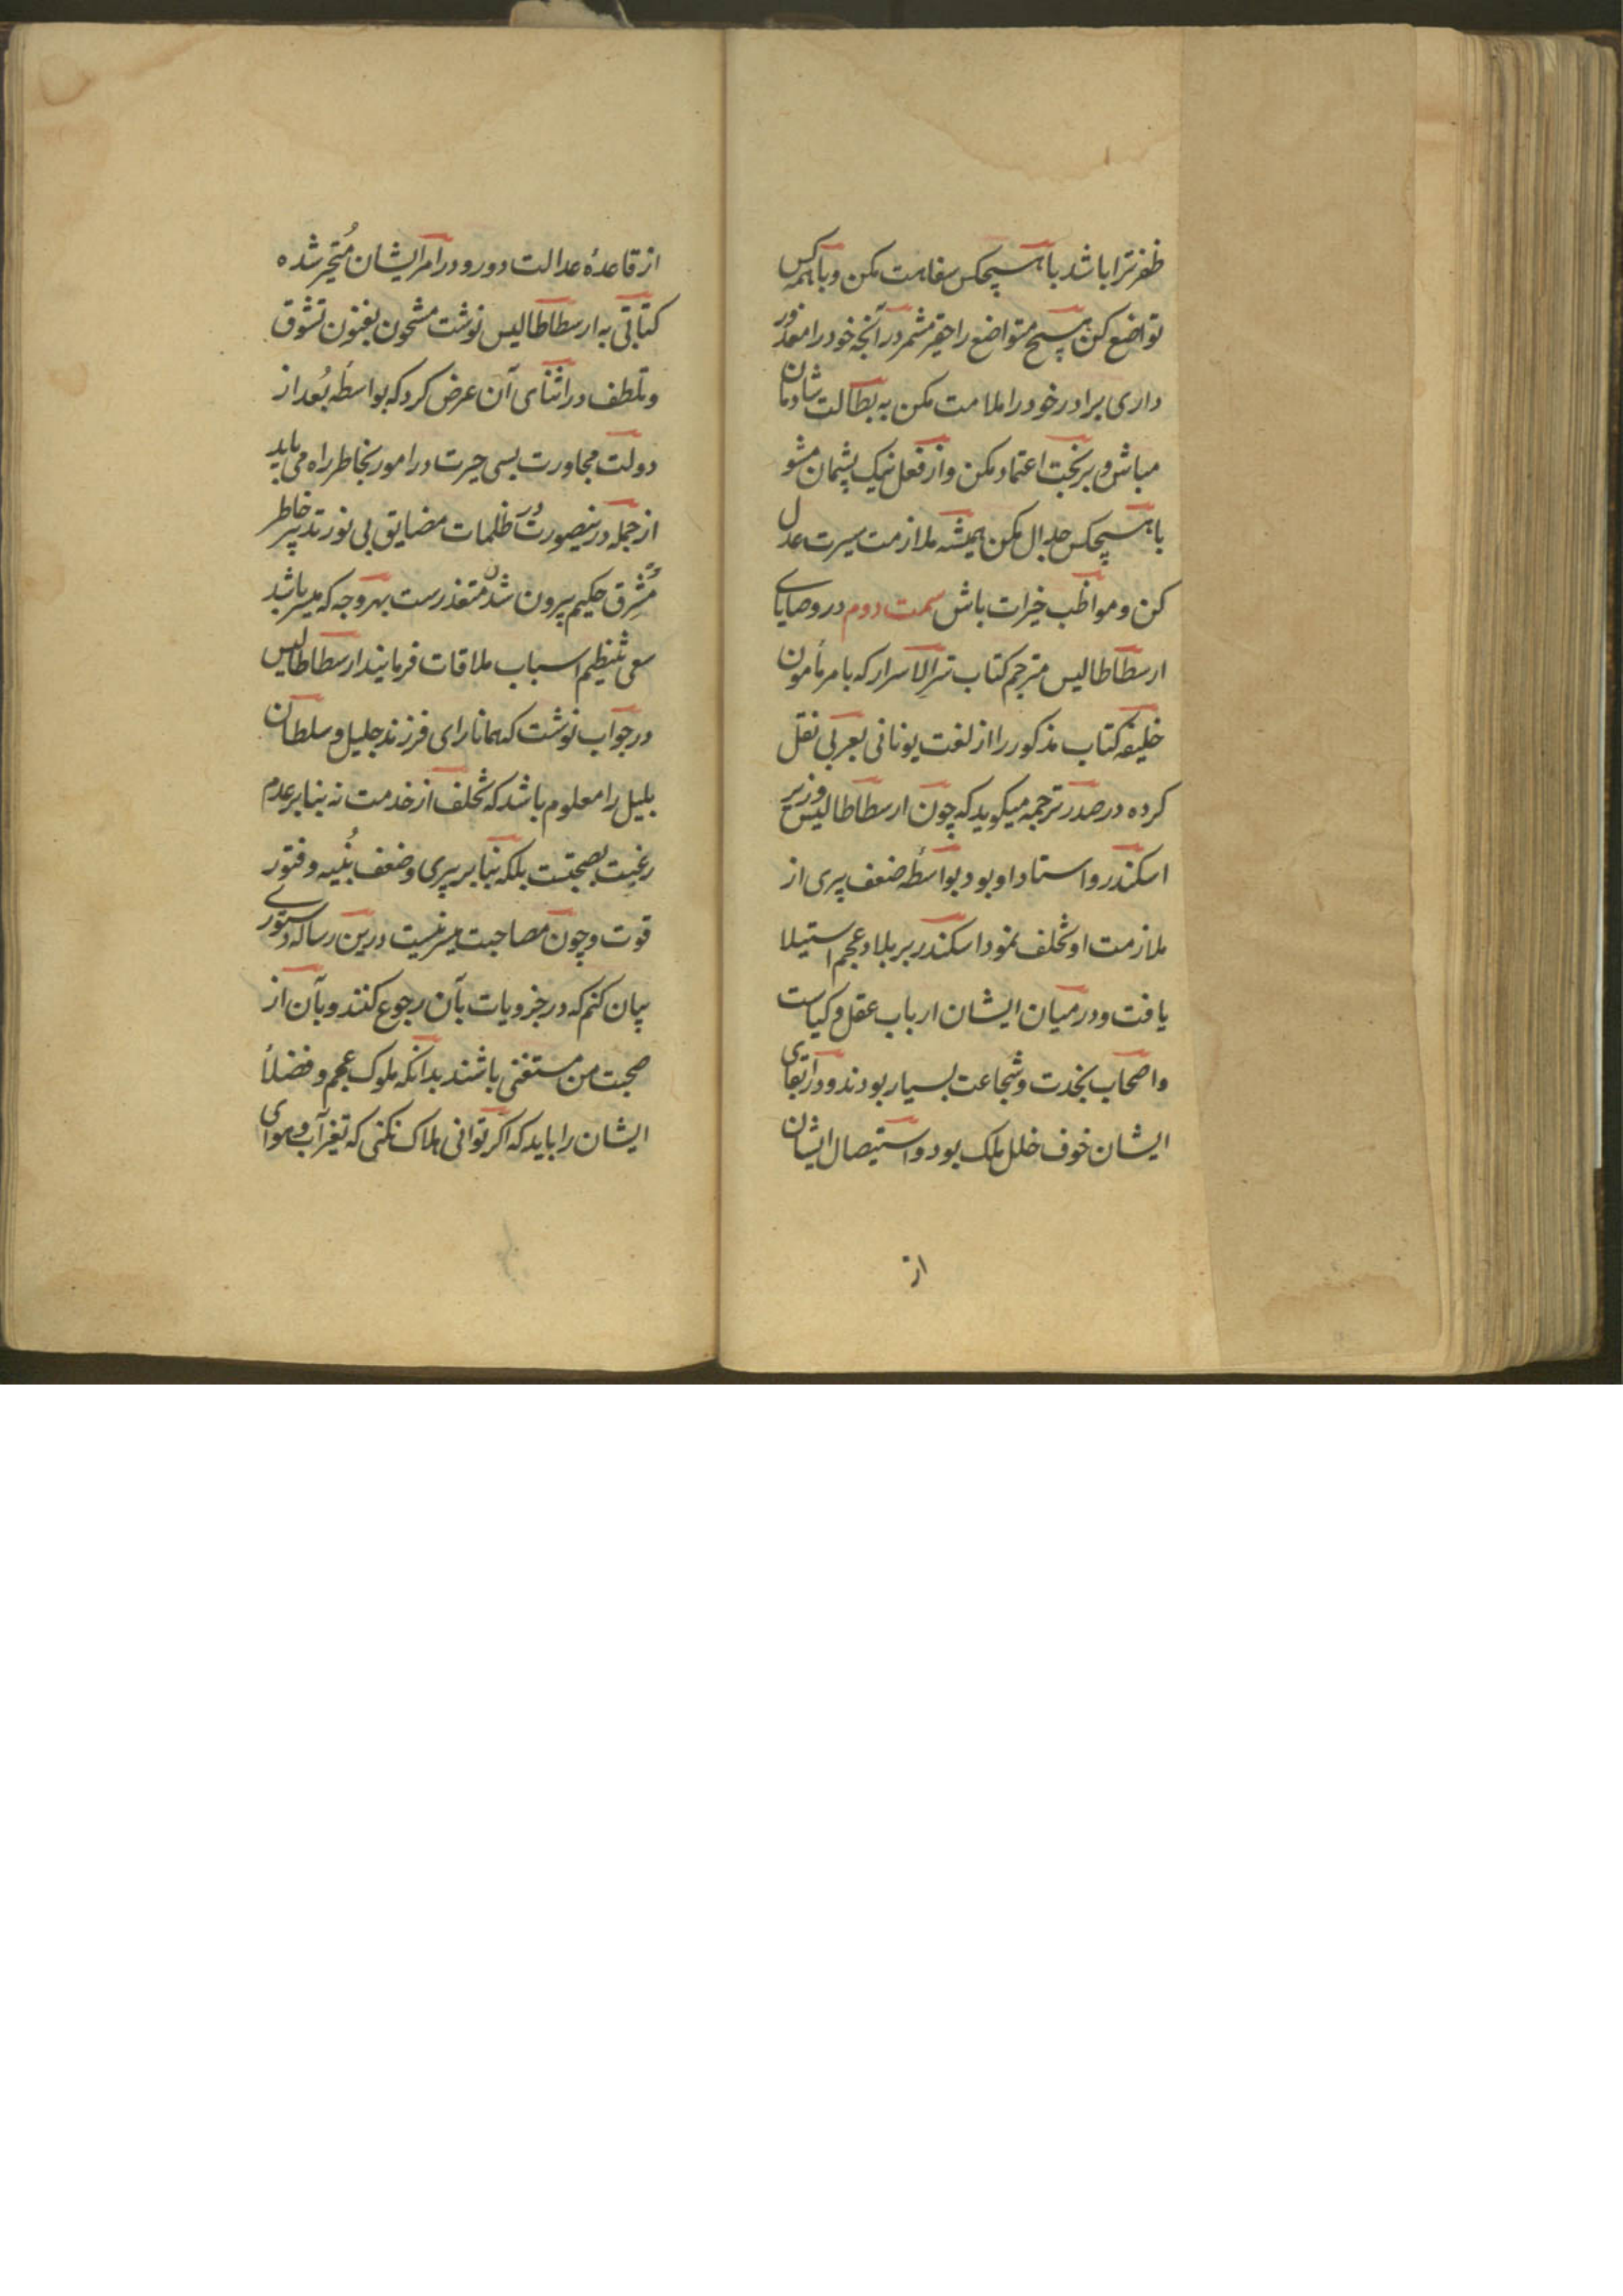 ظفر ترا باشد با هیچکس سفاهت مکن و با همه کس
تواضع کن هیچ متواضع را حقیر مشمر در آنچه خود را معذور
داری برادر خود را ملامت مکن به بطالت شادمان
مباش و بر بخت اعتماد مکن و از فعل نیک پشیمان مشو
با هیچکس جدال مکن همیشه ملازمت سیرت عدل
کن و مواظب خیرات باش سمت دوم در وصایای
ارسطاطالیس مترجم کتاب سرالاسرار که بامر مأمون
خلیفه کتاب مذکور را از لغت یونانی بعربی نقل
کرده در صدر ترجمه میکوید که چون ارسطاطالیس وزیر
اسکندر و استاد او بود بواسطهٔ ضعف پیری از
ملازمت او تخلف نمود اسکندر بر بلاد عجم استیلا
یافت و در میان ایشان ارباب عقل و کیاست
و اصحاب نجدت و شجاعت بسیار بودند و در ابقای
ایشان خوف خلل ملک بود و استیصال ایشان
از
از قاعدهٔ عدالت دور و در امر ایشان مُتحیر شده
کتابتی به ارسطاطالیس نوشت مشحون بفنون تشوق
و تلطف در اثنای آن عرض کرد که بواسطهٔ بُعد از
دولت مجاورت بسی حیرت در امور بخاطر راه می یابد
از جمله درینصورت در ظلمات مضایق بی نور تدبیر خاطر
مُشرِق حکیم بیرون شدن متعذرست بهر وجه که میسر باشد
سعی تنظیم اسباب ملاقات فرمایند ارسطاطالیس
در جواب نوشت که همانا رای فرزند جلیل و سلطان
بلیل را معلوم باشد که تخلف از خدمت نه بنابر عدم
رغبت بصحبتست بلکه بنابر پیری و ضعف بُنیه و فتور
قوت و چون مصاحبت میسر نیست درین رساله دستوری
بیان کنم که در جزویات بآن رجوع کنند و بآن از
صحبت من مستغنی باشند بدانکه ملوک عجم و فضلأ
ایشان را باید که اکر توانی هلاک نکنی که تغیر آب و هوای